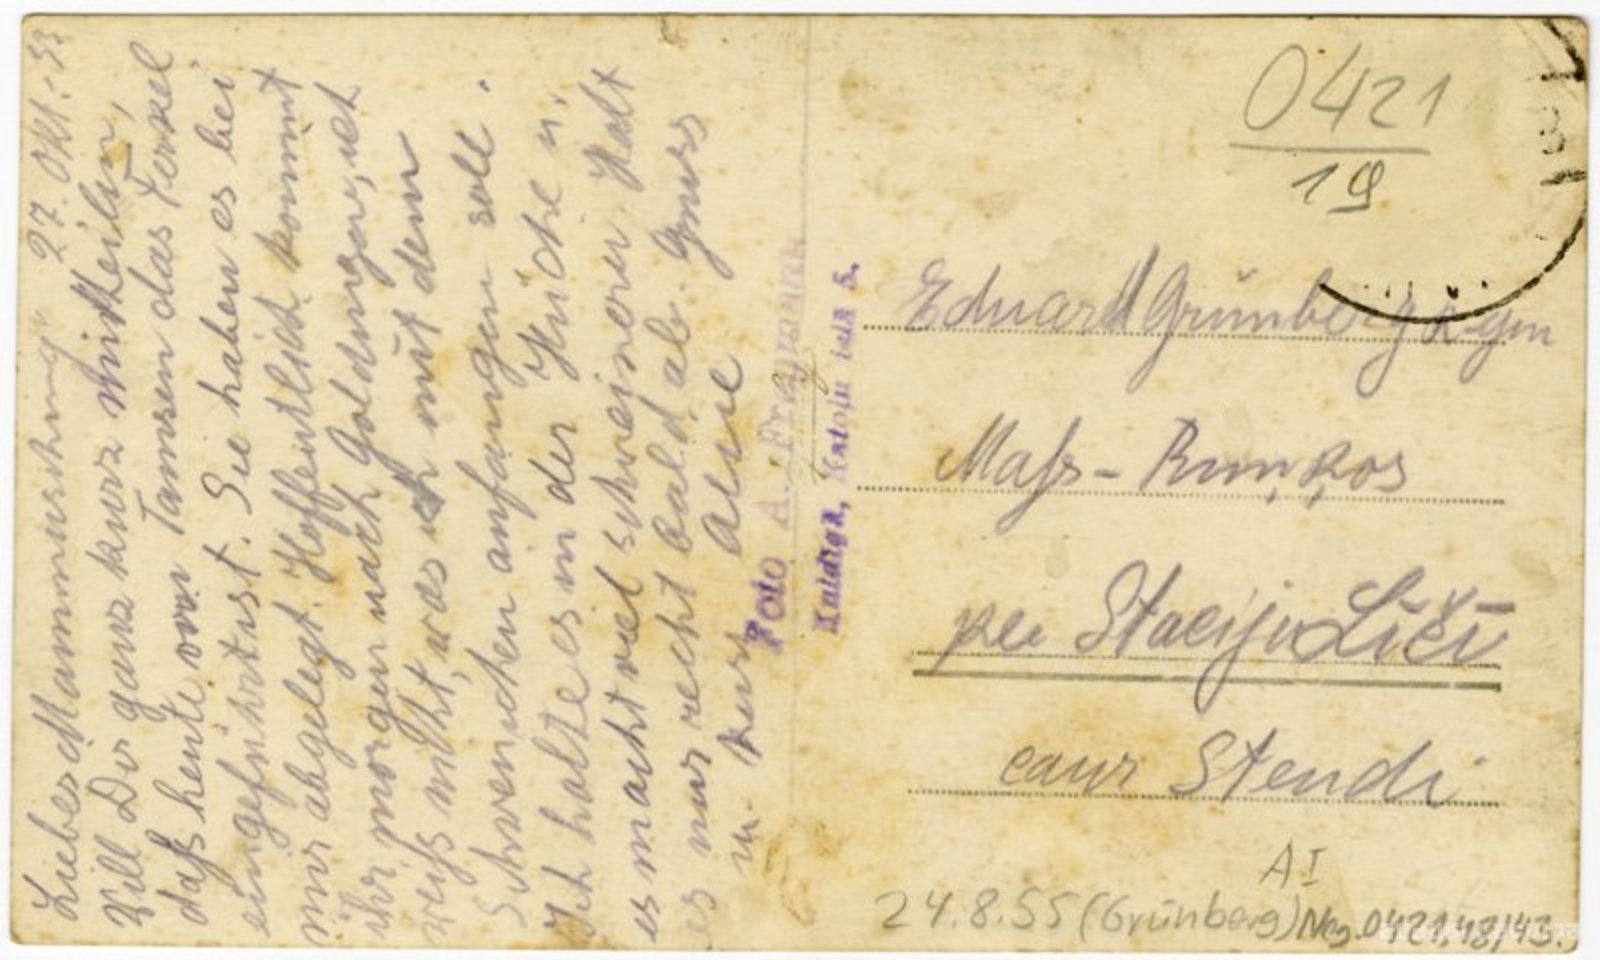 27. Okt. 33
Lieber Mammuschung
Will Dir ganz kurz mitteilen,
daß heute von Tamsen das Ferkel
eingeführt ist. Sie haben es bei
mir abgelegt. Hoffentlich kommt
ihr morgen nach Goldingen, ich
weiß nicht, was ich mit dem
Schweinchen anfangen soll.
Ich halte es in der Küche u.
es macht viel schweinerei. Holt
es nur recht bald ab. Gruss
u. Kuss
Foto A. Freymann
Kuldīgā, Katoļu ielā 5.
0421
19
Eduard Grünberg
Maſs-Rumķos
per Staciju Līči
caur Stendi
A I
24.8.55 (Grünberg) Neg. 0421,18/43.